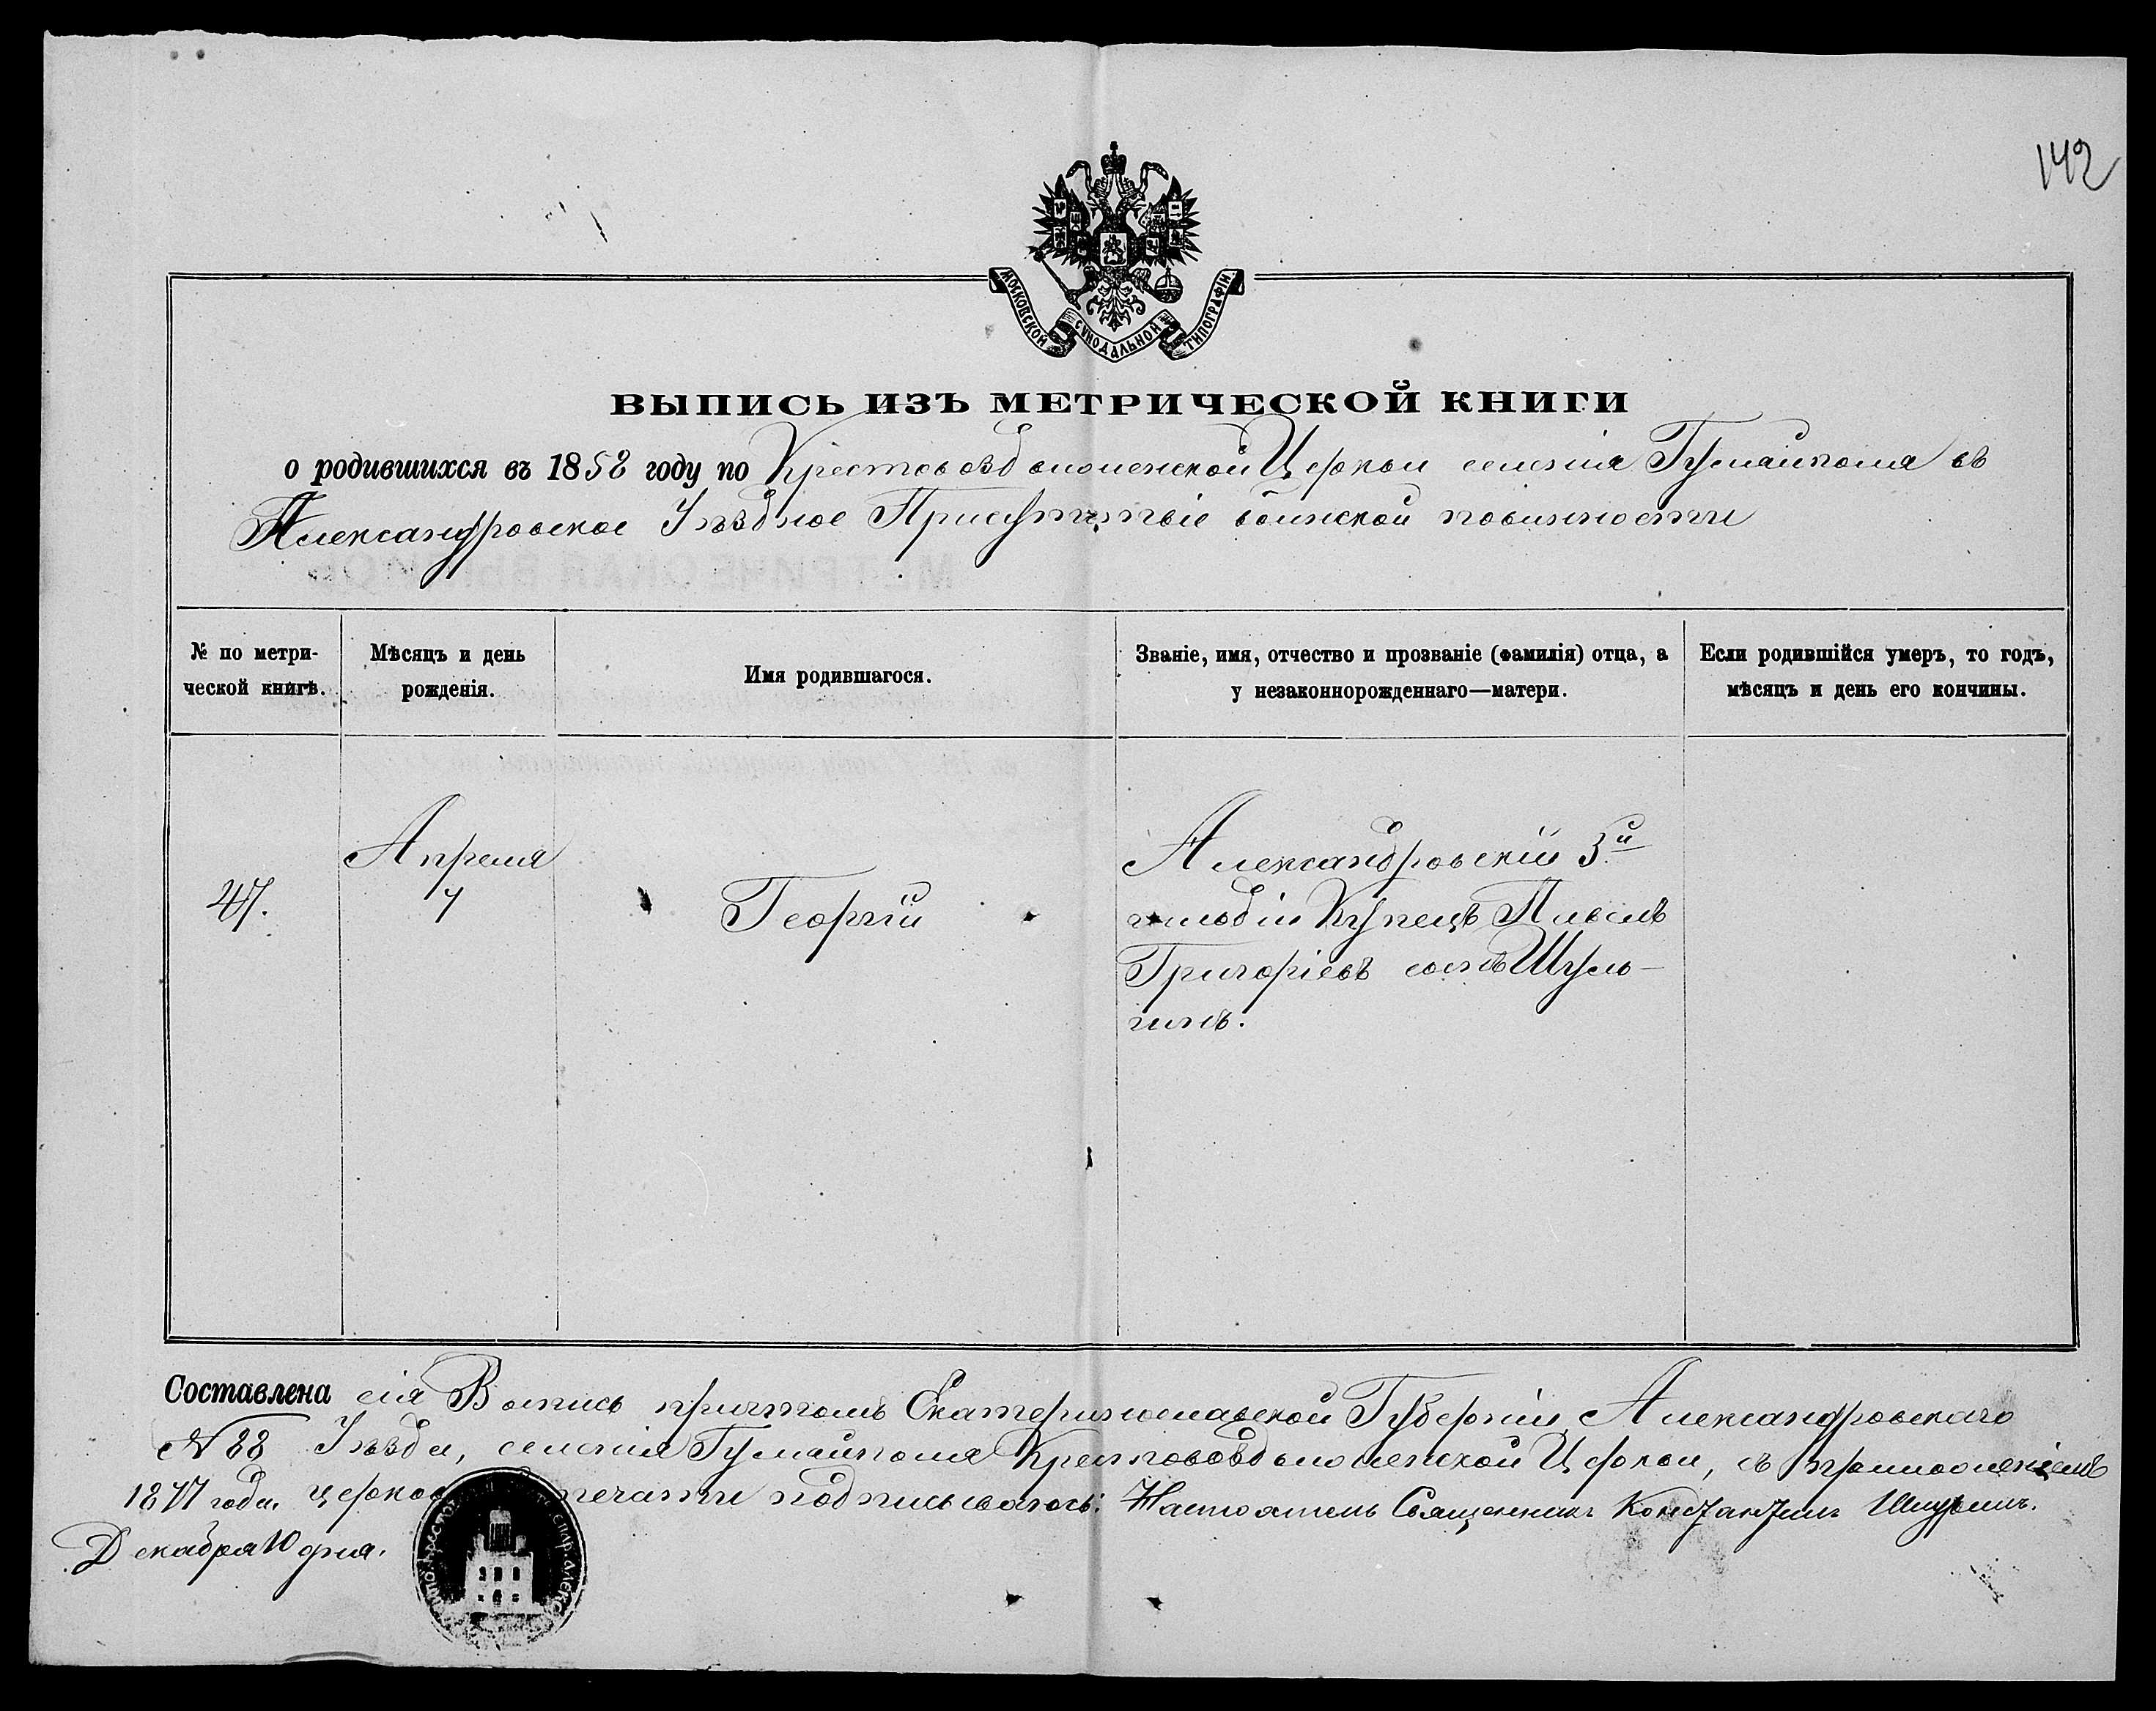 142
МОСКОВСКОЙ СѴНОДАЛЬНОЙ ТИПОГРАФІИ.
ВЫПИСЬ ИЗЪ МЕТРИЧЕСКОЙ КНИГИ
о родившихся въ 1858 году по Крестовоздвиженской Церкви селенія Гуляйполя въ
Александровское Уѣздное Присутствіе воинской повинности
№ по метри-
ческой книгѣ.
Мѣсяцъ и день
рожденія.
Имя родившагося.
Званіе, имя, отчество и прозваніе (фамилія) отца, а
у незаконнорожденнаго—матери.
Если родившійся умеръ, то годъ,
мѣсяцъ и день его кончины.
47.
Апреля
7
Георгій
Александровскій 3й
гильдіи Купецъ Павелъ
Григоріевъ сынъ Шуль-
гинъ.
Составлена сія Выпись причтомъ Екатеринославской Губерніи, Александровскаго
Уѣзда, селенія Гуляйполя Крестовоздвиженской Церкви, съ приложеніемъ
церковной печати подписывалось: Настоятель Священникъ Константинъ
№ 88
1877 года.
Декабря 10 дня.